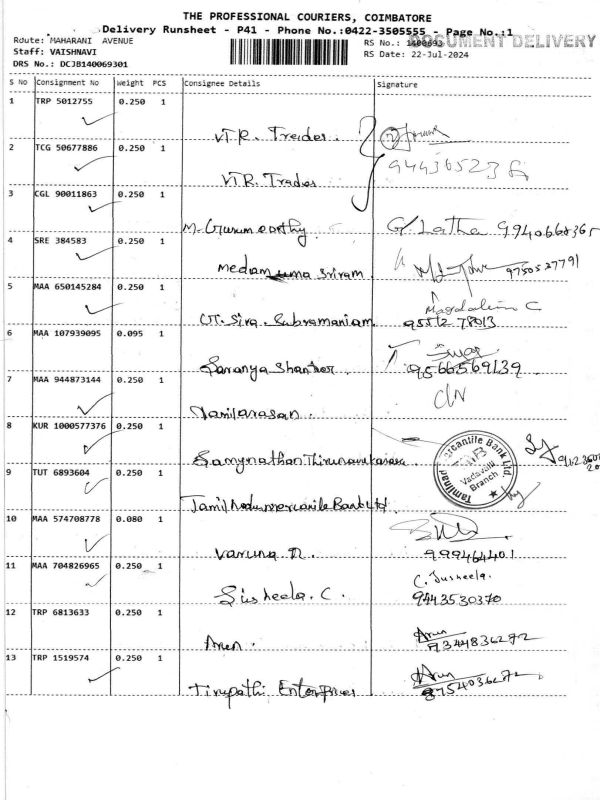 THE PROFESSIONAL COURIERS, COIMBATORE
Delivery Runsheet - P41 - Phone No.:0422-3505555 - Page No.:1
Route: MAHARANI AVENUE
RS No.: 1400693
DOCUMENT DELIVERY
Staff: VAISHNAVI
RS Date: 22-Jul-2024
DRS No.: DCJB140069301
S No Consignment No Weight PCS Consignee Details Signature
1 TRP 5012755 0.250 1
VTR. Traders.
2 TCG 50677886 0.250 1
VTR. Traders
3 CGL 90011863 0.250 1
M. Gurumoorthy G. Latha
4 SRE 384583 0.250 1
Medam uma Sriram 9750527791
5 MAA 650145284 0.250 1
Magdalin C
UT. Siva. Subramaniam
6 MAA 107939095 0.095 1
Saranya Shankar. 9566569139
7 MAA 944873144 0.250 1
Tamilarasan.
8 KUR 1000577376 0.250 1
Tamilnad Mercantile Bank Ltd
Vadavalli Branch
9 TUT 6893604 0.250 1
Tamil Nadu mercantile Bank Ltd
10 MAA 574708778 0.080 1
Varuna R.
11 MAA 704826965 0.250 1
C. Susheela.
Susheela. C. 9443530370
12 TRP 6813633 0.250 1
Arun
Arun. 7344836272
13 TRP 1519574 0.250 1
Arun
Tirupathi Enterprises 8754036272